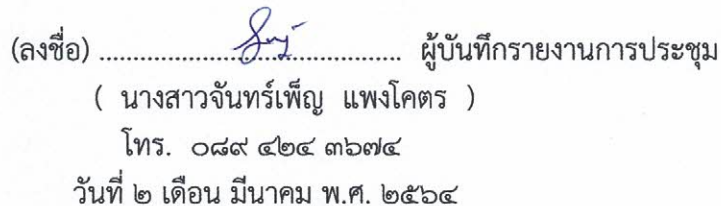 (ลงชื่อ) ........................................ ผู้บันทึกรายงานการประชุม
( นางสาวจันทร์เพ็ญ แพงโคตร )
โทร. ๐๘๙ ๔๒๔ ๓๖๗๔
วันที่ ๒ เดือน มีนาคม พ.ศ. ๒๕๖๔